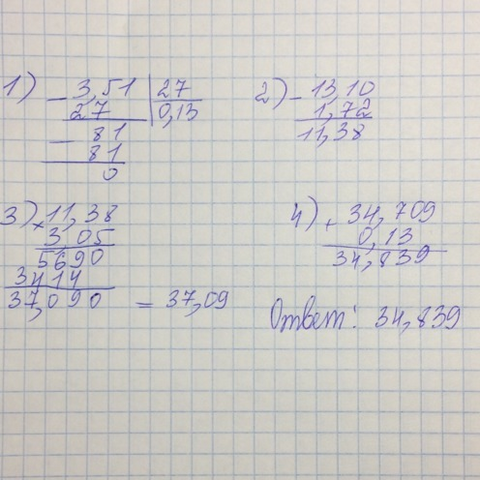 1) - 3,51 | 27
27 | 0,13
- 81
81
0
2) - 13,10
1,72
11,38
3) × 11,38
3,05
5690
3414
37,090 = 37,09
4) + 34,709
0,13
34,839
Ответ: 34,839